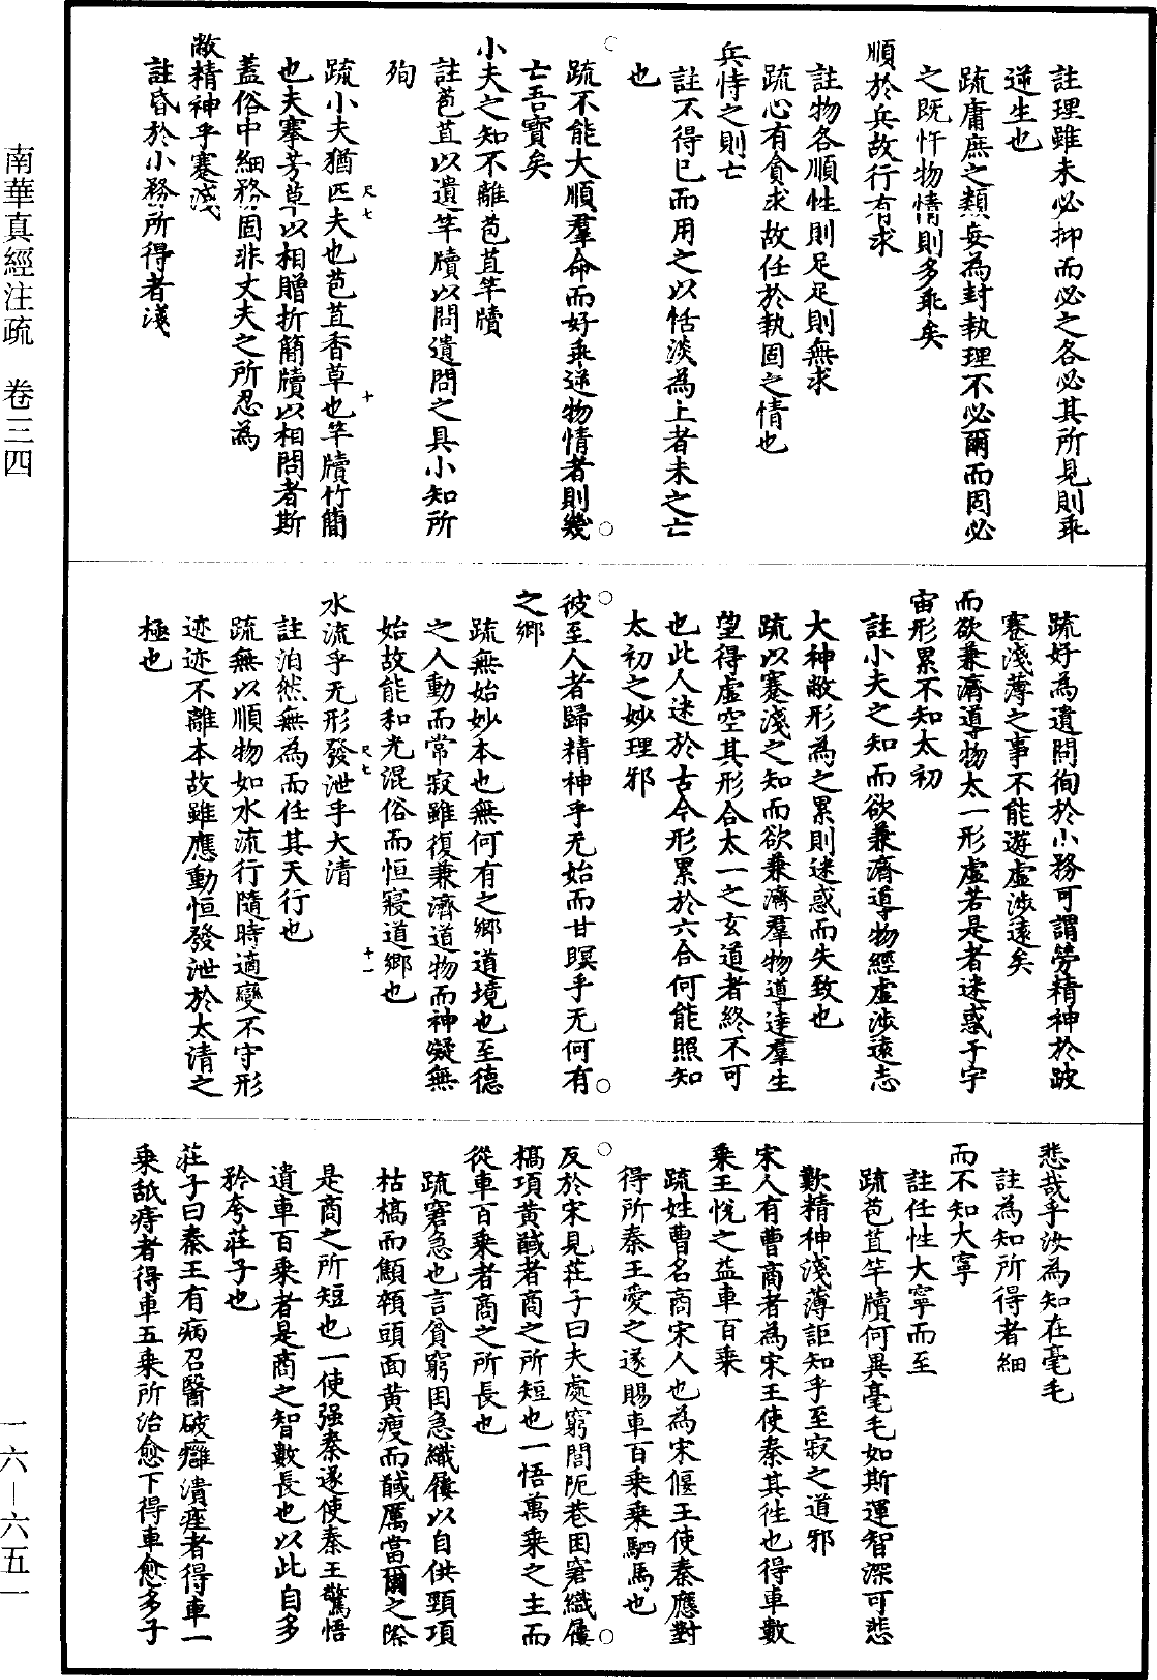 註理雖未必抑而必之各必其所見則乖
逆生也
疏庸庶之類妄為封執理不必爾而固必
之既忤物情則多乖矣
順於兵故行有求
註物各順性則足足則無求
疏心有貪求故任於執固之情也
兵恃之則亡
註不得已而用之以恬淡為上者未之亡
也
疏不能大順羣命而好乖逆物情者則幾
亡吾寶矣
小夫之知不離苞苴竿牘
註苞苴以遺竿牘以問遺問之具小知所
殉
疏小夫猶匹夫也苞苴香草也竿牘竹簡
也夫搴芳草以相贈折簡牘以相問者斯
蓋俗中細務固非丈夫之所忍為
敝精神乎蹇淺
註昏於小務所得者淺
疏好為遺問徇於小務可謂勞精神於跛
蹇淺薄之事不能遊虛涉遠矣
而欲兼濟導物太一形虛若是者迷惑于宇
宙形累不知太初
註小夫之知而欲兼濟導物經虛涉遠志
大神敝形為之累則迷惑而失致也
疏以蹇淺之知而欲兼濟羣物導達羣生
望得虛空其形合太一之玄道者終不可
也此人迷於古今形累於六合何能照知
太初之妙理邪
彼至人者歸精神乎无始而甘瞑乎无何有
之鄉
疏無始妙本也無何有之鄉道境也至德
之人動而常寂雖復兼濟道物而神凝無
始故能和光混俗而恒寢道鄉也
水流乎无形發泄乎大清
註泊然無為而任其天行也
疏無以順物如水流行隨時適變不守形
迹迹不離本故雖應動恒發泄於太清之
極也
悲哉乎汝為知在毫毛
註為知所得者細
而不知大寧
註任性大寧而至
疏苞苴竿牘何異毫毛如斯運智深可悲
歎精神淺薄詎知乎至寂之道邪
宋人有曹商者為宋王使秦其往也得車數
乘王悅之益車百乘
疏姓曹名商宋人也為宋偃王使秦應對
得所秦王愛之遂賜車百乘乘駟馬也
反於宋見莊子曰夫處窮閭阨巷困窘織屨
槁項黃馘者商之所短也一悟萬乘之主而
從車百乘者商之所長也
疏窘急也言貧窮困急織屨以自供頸項
枯槁而顦顇頭面黃瘦而馘厲當爾之際
是商之所短也一使强秦遂使秦王驚悟
遺車百乘者是商之智數長也以此自多
矜夸莊子也
莊子曰秦王有病召醫破癰潰痤者得車一
乘舐痔者得車五乘所治愈下得車愈多子
尺七 十
尺七 十一
南華真經注疏 卷三四
一六—六五一